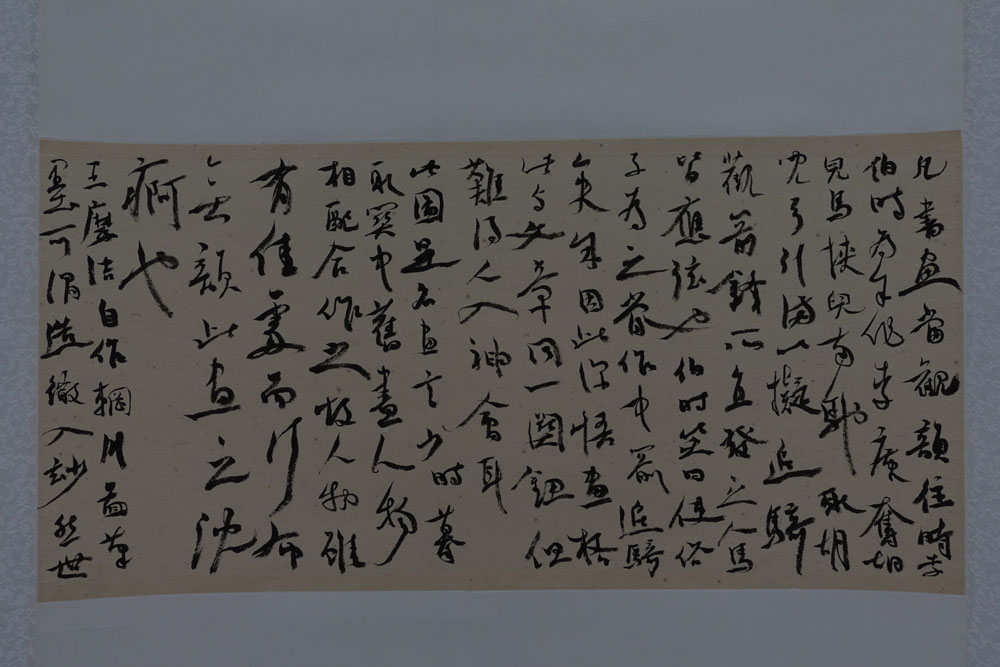 凡書画當觀韻往時李
伯時為余作李廣奪胡
兒馬挾兒南馳取胡
兒弓引滿以擬追騎
觀箭鋒所直發之人馬
皆應弦也伯時笑曰使俗
子為之當作中箭追騎
矣余因此深悟畫格
此与文章同一關鈕但
難得人入神會耳
此圖是名画言少時摹
取窠中舊畫人物
相配合作之故人物雖
有佳處而行布
無韻此畫之沈
痾也
王摩詰自作輞川圖筆
墨可謂造微入妙然世